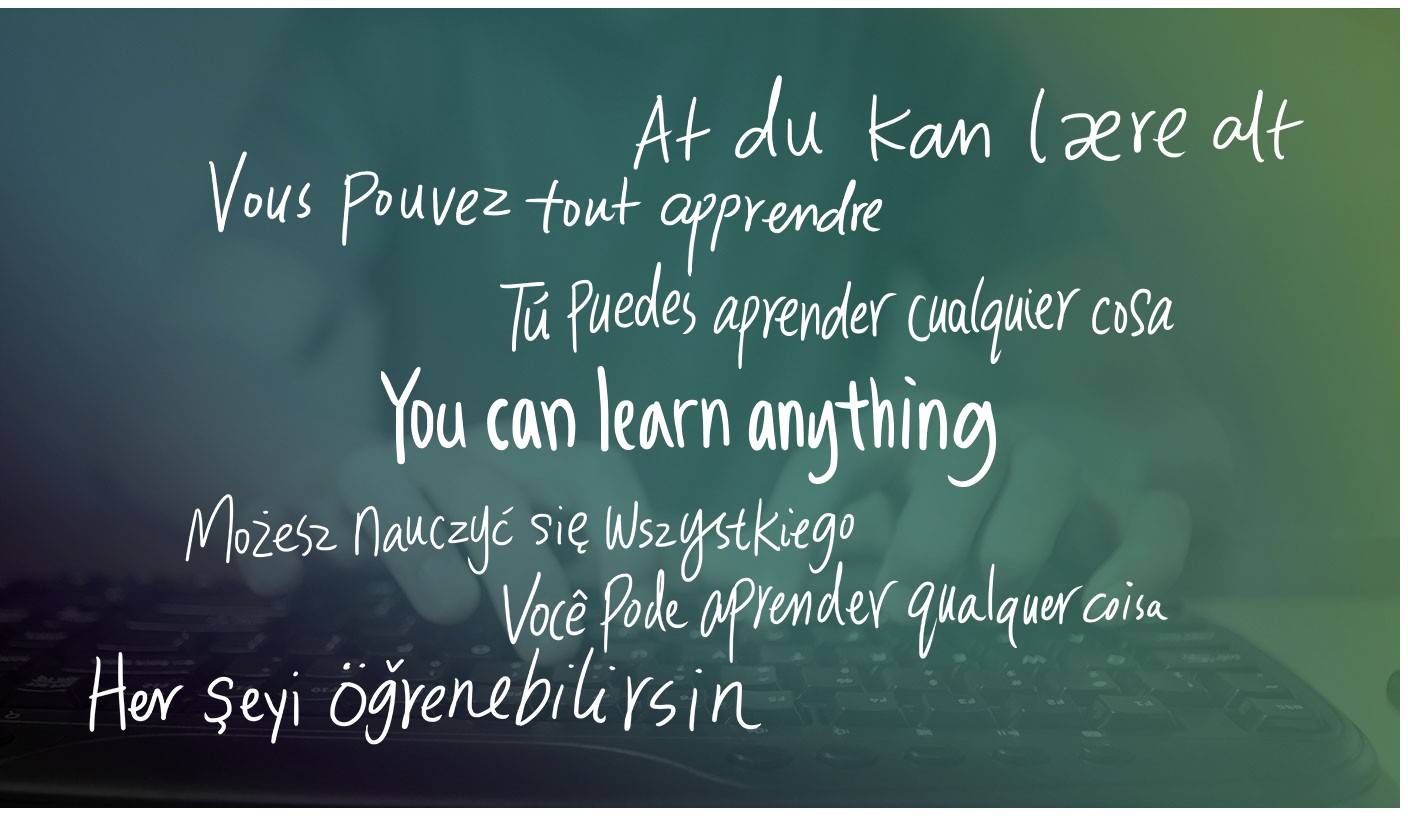 At du kan lære alt
Vous pouvez tout apprendre
Tú puedes aprender cualquier cosa
You can learn anything
Możesz nauczyć się wszystkiego
Você pode aprender qualquer coisa
Her şeyi öğrenebilirsin